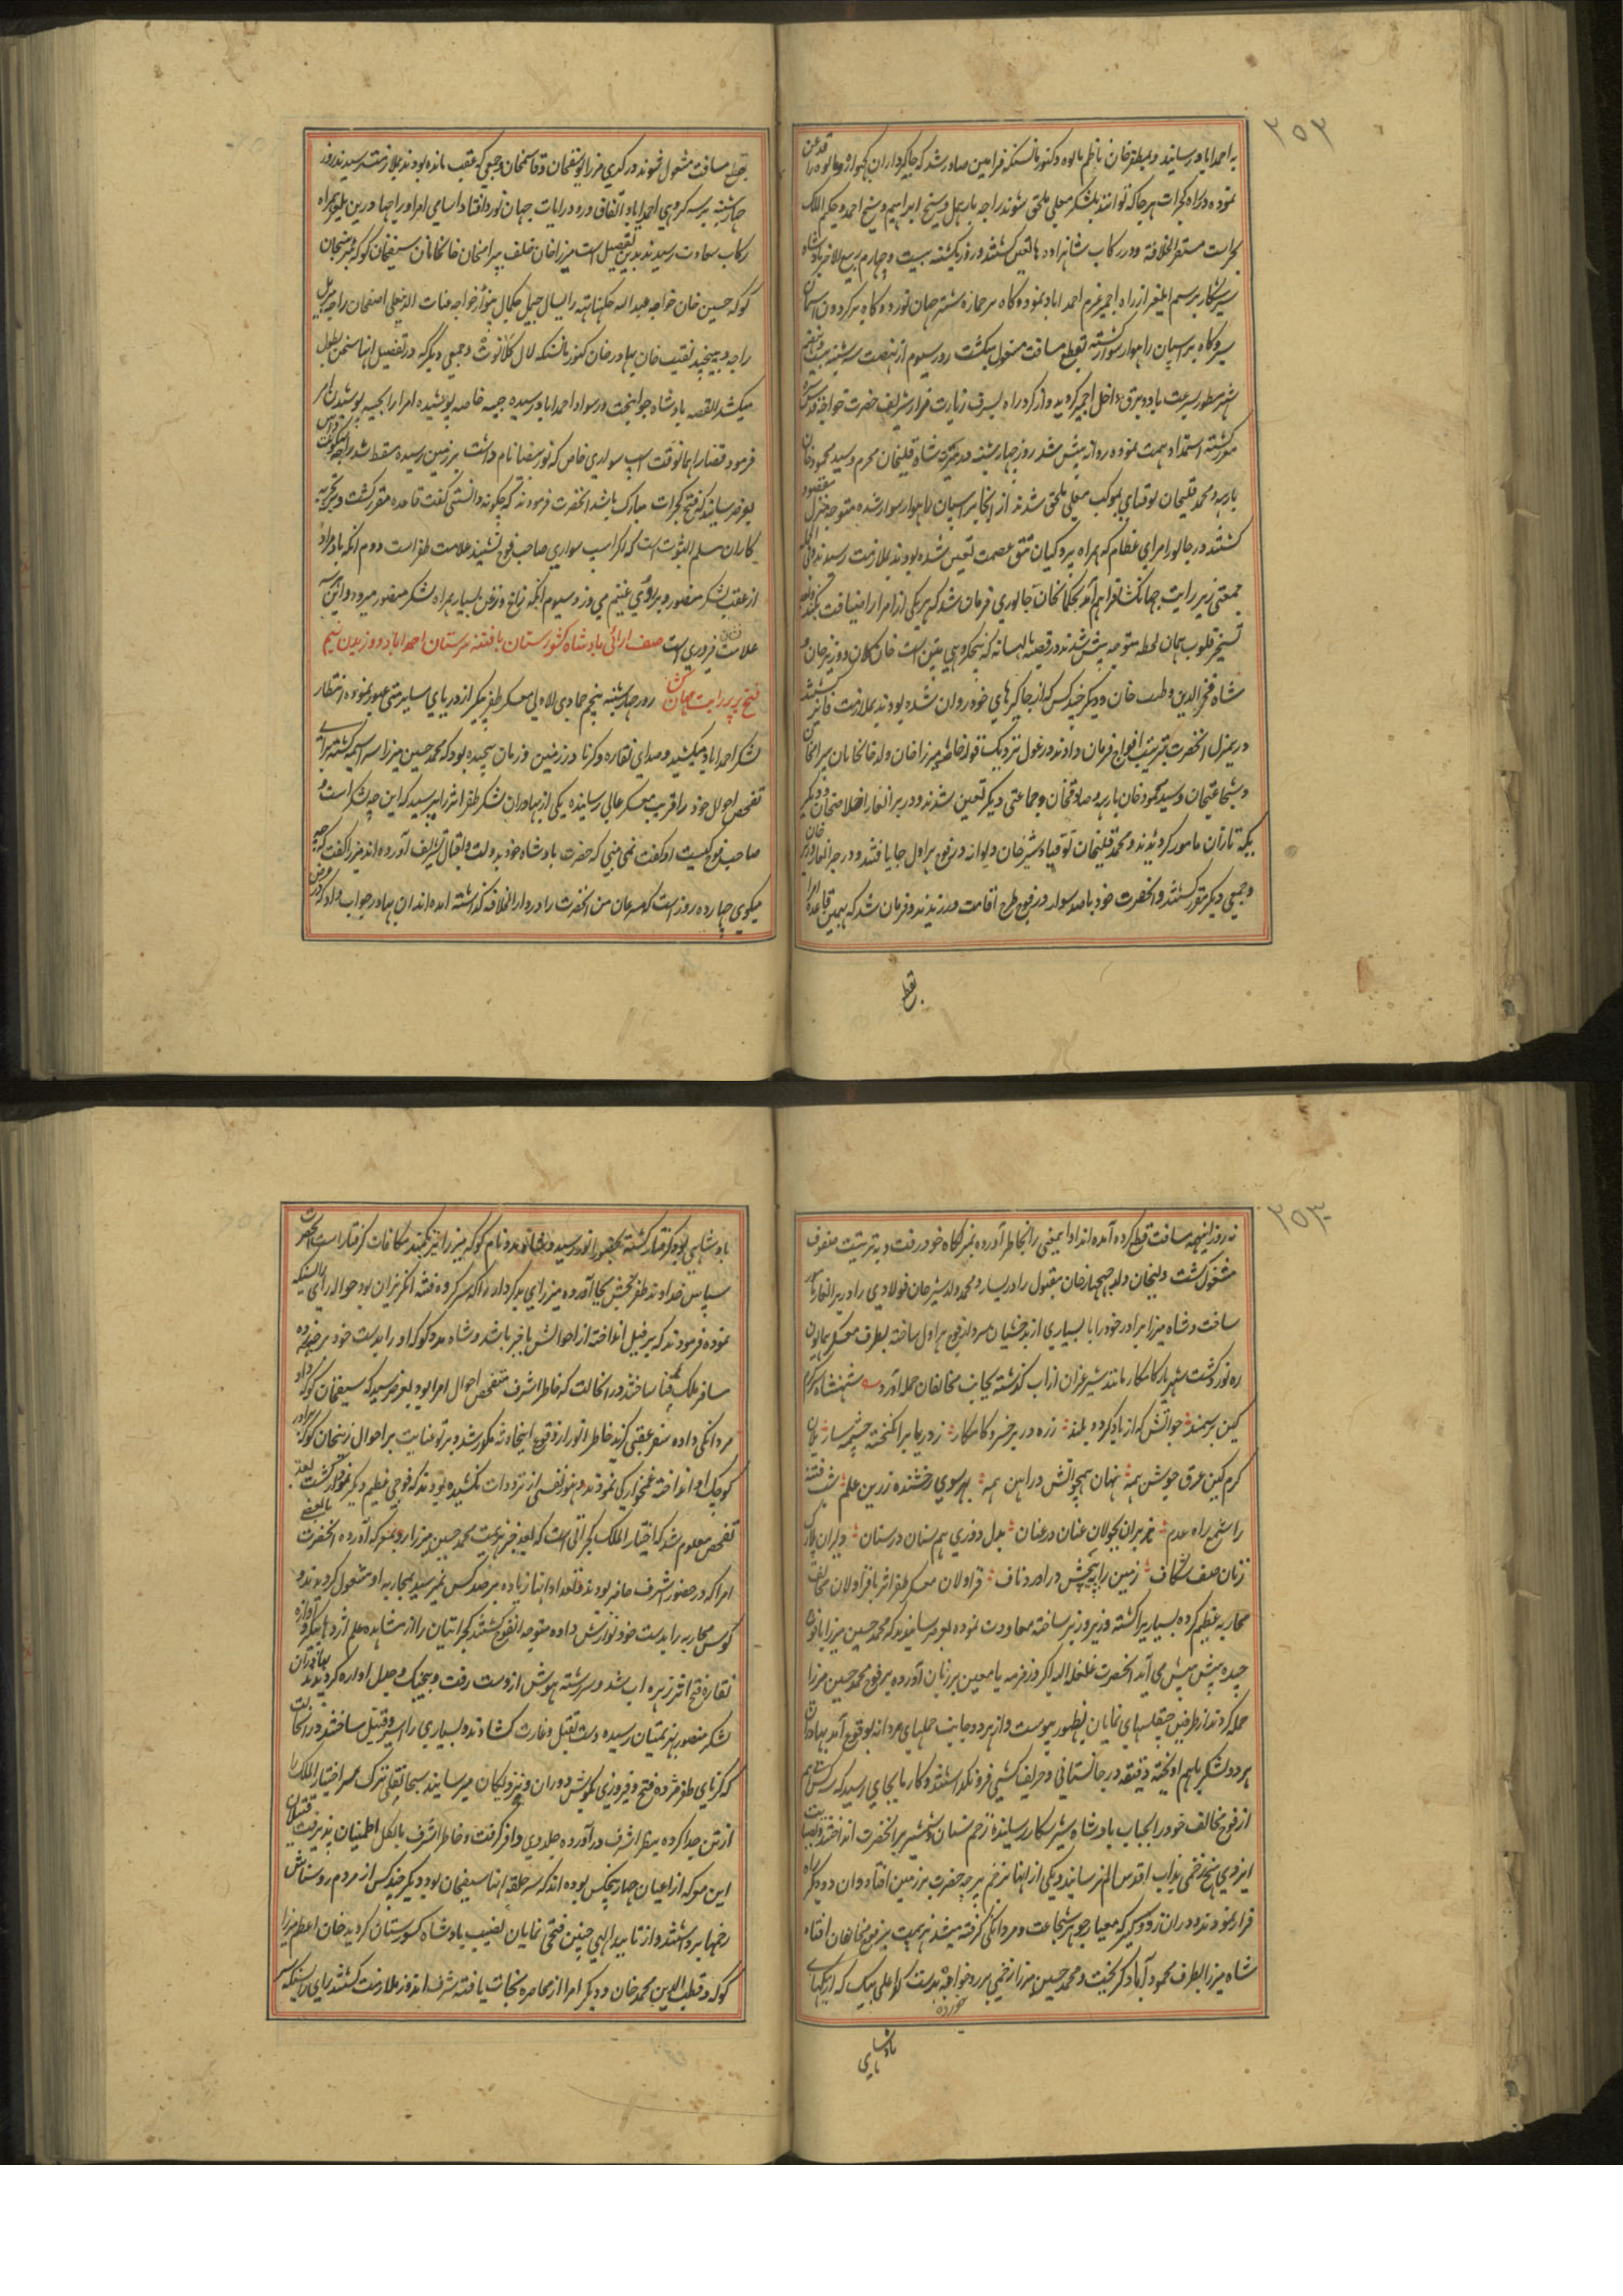 ۲۵۲
به احمداباد رسانید و مظفر خان ناظم مالوه و کنور مانسنکه فرامین صادر شد که جاکیرداران کهیواره و مالوه را قدغن
نموده در راه کجرات هر جا که توانند بلشکر معلی ملحق شوند راجه بارهمل و شیخ ابراهیم و شیخ احمد و حکیم الملک
بحراست مستقر الخلافه و در رکاب شاهزاده ها تعین کشتند و روز یکشنبه بیست و چهارم ربیع الاخر بادشاه
برسم ایلغار از راه اجمیر عزم احمداباد نموده و کاه بر جمازه شتر جهان نورد و کاه بر کردون
سیر و کاه بر اسپان راهوار سوار کشته بقطع مسافت مشغول میکشت روز سیوم از نهضت سه شنبه
شهر مسطور بسرعت باد و برق داخل اجمیر کردید و از کرد راه بشرف زیارت مزار شریف حضرت خواجه قدس سره
مشرف کشته استمداد همت نموده روانه پیش شد روز چهارشنبه در میرته شاه قلیخان محرم و سید محمود خان
بارهه و محمد قلیخان توقبای بموکب معلی ملحق شدند از انجا بر اسپان راهوار سوار شده متوجه منزل مقصود
کشتند در جالور امرای عظام که همراه پردکیان تتق عصمت تعین شده بودند بملازمت رسیدند
جمعی زیر رایت جهانکشا فراهم آمد بحکم خان جالوری فرمان شد که هر یکی از امرا را ضیافت بکند
تسخیر قلوب همان لحظه متوجه پیش شدند در قصبه بالیسانه که پنجکروهی پتن است خان کلان و وزیر خان و
شاه فخرالدین و طیب خان و دیکر چند کس که از جاکیرهای خود روان شده بودند بملازمت فائز کشتند
در یمنزل انحضرت بترتیب افواج فرمان دادند در غول نزدیک میرزا خان ولد خانخانان بیرامخان
و شجاعتخان و سید محمود خان بارهه و صادقخان و جماعتی دیکر تعین شدند و در برانغار
یکه تازان مامور کردیدند و محمد قلیخان توقبای و شیر خان دیوانه در فوج هراول جا یافتند و در جرانغار وزیر خان
و جمعی دیکر مقرر کشتند و انحضرت خود با صد سوار در فوج طرح اقامت ورزیدند و فرمان شد که بهمین قاعده
بقطع
بقطع مسافت مشغول شوند در کری میرزا یوسفخان و قاسمخان و جمعی که بعقب مانده بودند بملازمت رسیدند روز
چهارشنبه بر سه کروهی احمداباد اتفاق ورود رایات جهان نورد افتاد اسامی امرا و راجها درین یلغار همراه
رکاب سعادت رسیدند بدین تفصیل است میرزا خان خلف بیرامخان خانخانان سیفخان کوکه
کوکه حسین خان خواجه عبدالله راجه بیربل
راجه دیبیچند نقیب خان بهادر خان کنور مانسنکه لال کلانوت و جمعی دیکر که در تفصیل انها سخن بطول
میکشد القصه پادشاه جوانبخت در سواد احمداباد رسیده جیبه خاصه پوشیده امرا را بجیبه پوشیدن امر
فرمود قضارا همانوقت اسپ سواری خاص که نور سفید نام داشت بر زمین رسیده سقط شد
بعرض رسانید که فتح کجرات مبارک باشد انحضرت فرمودند که چکونه دانستی کفت قاعده مقرر کشت و بتجربه
کاران مسلم الثبوت است که اکر اسپ سواری صاحب فوج نشیند علامت ظفر است دوم انکه باد مراد
از عقب لشکر منصور و بر روی غنیم می وزد سیوم انکه زاغ و زغن بسیار همراه لشکر منصور میرود و این هر سه
علامت فیروزی است صف ارائی بادشاه کشورستان با فتنه پرستان احمداباد و وزیدن نسیم
فتح بر رایت جهان کشا روز چهارشنبه پنجم جمادی الاولی معسکر ظفرپیکر از دریای سابرمتی عبور نموده انتظار
لشکر احمداباد میکشید و صدای نقاره و کرنا در زمین و زمان پیچیده بود که محمد حسین میرزا سراسیمه کشته برای
تفحص احوال خود را قریب معسکر عالی رسانیده یکی از بهادران لشکر ظفر اثر را پرسید که این چه لشکر است و
صاحب فوج کیست او کفت نمی بینی که حضرت بادشاه خود بدولت و اقبال تشریف آورده اند میرزا کفت که چه
میکوی چهارده روز است که مسرعان من انحضرت را در دارالخلافه کذاشته امده اند ان بهادر جواب داد که
۲۵۳
نه روز اینهمه مسافت قطع کرده آمده اند او ایمعنی را بخاطر آورده بمنزلکاه خود رفت و به ترتیب صفوف
مشغول کشت ولیخان ولد جهجهارخان مقبول را در یسار و محمد ولد شیر خان فولادی را در برانغار مامور
ساخت و شاه میرزا برادر خود را با بسیاری از بدخشیان سردار فوج هراول ساخته بطرف معسکر همایون
ره نورد کشت شهریار کامکار مانند شیر غران از اب کذشته بجانب مخالفان حمله آورد شهنشاه
کین بر سمند جو آتش که از باد کردد بلند زره در بر خسرو کامکار ز دریا برانکیخته چشمه سار
کرم کین عرق جوشن همه نهان همچو آتش در اهن همه بهر سوی رخشنده زرین علم شب فتنه
را شمع راه عدم هژبران بجولان عنان در عنان بدل دوزی هم سنان در سنان دلیران
زنان صف شکاف زمین را به پیچش در اورد ناف قراولان معسکر ظفر اثر با قراولان مخالف
محاربه عظیم کرده بسیاری را کشته و زیر و زبر ساخته معاودت نموده بعرض رسانیدند که محمد حسین میرزا با فوج
چیده پیش پیش می آید انحضرت غلغله الله اکبر و زمزمه یا معین بر زبان آورده بر فوج محمد حسین میرزا
حمله کردند از طرفین چپقلسهای نمایان بظهور پیوست و از هر دو جانب حملهای مردانه بوقوع آمد بهادران
هر دو لشکر باهم اویخته دقیقه در جانستانی و حریف کشی فرو نکذاشتند و کار بجای رسید که سه کس
از فوج مخالف خود را بجناب بادشاه شیر شکار رسانیده زخم سنان و شمشیر بر انحضرت انداختند
ایزدی هیچ زخمی بذات اقدس الم نرسانید و یکی از انها بزخم برچه حضرت بر زمین افتاد و ان دو دیکر راه
فرار نمودند و دران زد و کیر که معیار جوهر شجاعت و مردانکی کرفته میشد هزیمت بر فوج مخالفان افتاد
شاه میرزا بطرف محمود آباد کریخت و محمد حسین میرزا زخمی بر رو خورده بدست کدا علی بیک که از یکهای
بادشاهی
بادشاهی بود کرفتار کشته بحضور انور رسید
سپاس خداوند ظفر بخش بجا آورده میرزای بدکردار را که سرکرده فتنه انکیزان بود حواله رای سنکه
نموده فرمودند که بر فیل انداخته از احوالش باخبر باشد و شاه مدد کوکه او را بدست خود برچه زده
مسافر ملک فنا ساخت در انحالت که خاطر اشرف متفحص احوال امرا بود بعرض رسید که سیفخان کوکه داد
مردانکی داده سفر عقبی کزید خاطر انور از وقوع اینحادثه مکدر شد و پرتو عنایت بر احوال زینخان کوکه برادر
کوچک او انداخته غمخوارکی نمودند هنوز نفسی از ترددات نکشیده بودند که فوجی عظیم دیکر نمودار کشت بعد
تفحص معلوم شد که اختیار الملک کجراتی است که بعد خبر هزیمت محمد حسین میرزا رو بمعرکه آورده انحضرت
امرا که در حضور اشرف حاضر بودند تعداد انها زیاده بر صد کس نمیرسید بمحاربه او مشغول کردیدند و
کوس محاربه را بدست خود نوازش داده متوجه انفوج کشتند کجراتیان را از مشاهده علم اژدها پیکر و آوازه
نقاره فتح اثر زهره اب شد و سررشته هوش از دست رفت و بیجنک و جدل اواره کردیدند بهادران
لشکر منصور بهزیمتیان رسیده دست بقتل و غارت کشادند و بسیاری را اسیر و قتیل ساختند در انحالت
که کرنای ظفر مژده فتح و فیروزی بکوش دوران و نزدیکان میرسانید سبحانقلی ترک سر اختیار الملک را
از تن جدا کرده بنظر اشرف درآورده جلدوی وافر کرفت و خاطر اشرف بالکل اطمینان پذیرفت
این معرکه از اعیان چهار پنجکس بوده اند که سر حلقه انها سیفخان بود و دیکر چند کس از مردم روشناس
زخمها برداشتند و از تایید الهی چنین فتحی نمایان نصیب بادشاه کشورستان کردید خان اعظم میرزا
کوکه و قطب الدین محمد خان و دیکر امرا از محاصره نجات یافته شرف اندوز ملازمت کشتند رای سنکه